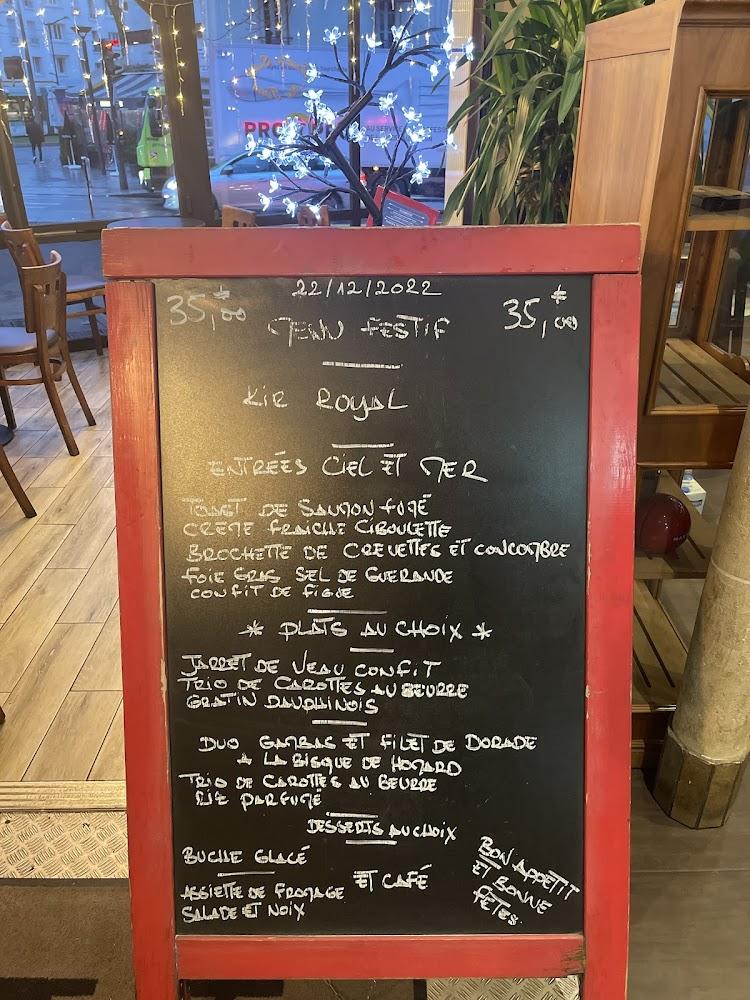 22/12/2022
35,00€
35,00€
MENU FESTIF
KIR ROYAL
ENTRÉES CIEL ET MER
TOAST DE SAUMON FUMÉ
CRÈME FRAICHE CIBOULETTE
BROCHETTE DE CREVETTES ET CONCOMBRE
FOIE GRAS SEL DE GUERANDE
CONFIT DE FIGUE
* PLATS AU CHOIX *
JARRET DE VEAU CONFIT
TRIO DE CAROTTES AU BEURRE
GRATIN DAUPHINOIS
DUO GAMBAS ET FILET DE DORADE
A LA BISQUE DE HOMARD
TRIO DE CAROTTES AU BEURRE
RIZ PARFUMÉ
DESSERTS AU CHOIX
BUCHE GLACÉ
ET CAFÉ
ASSIETTE DE FROMAGE
SALADE ET NOIX
BON APPÉTIT
ET BONNE
FÊTES.